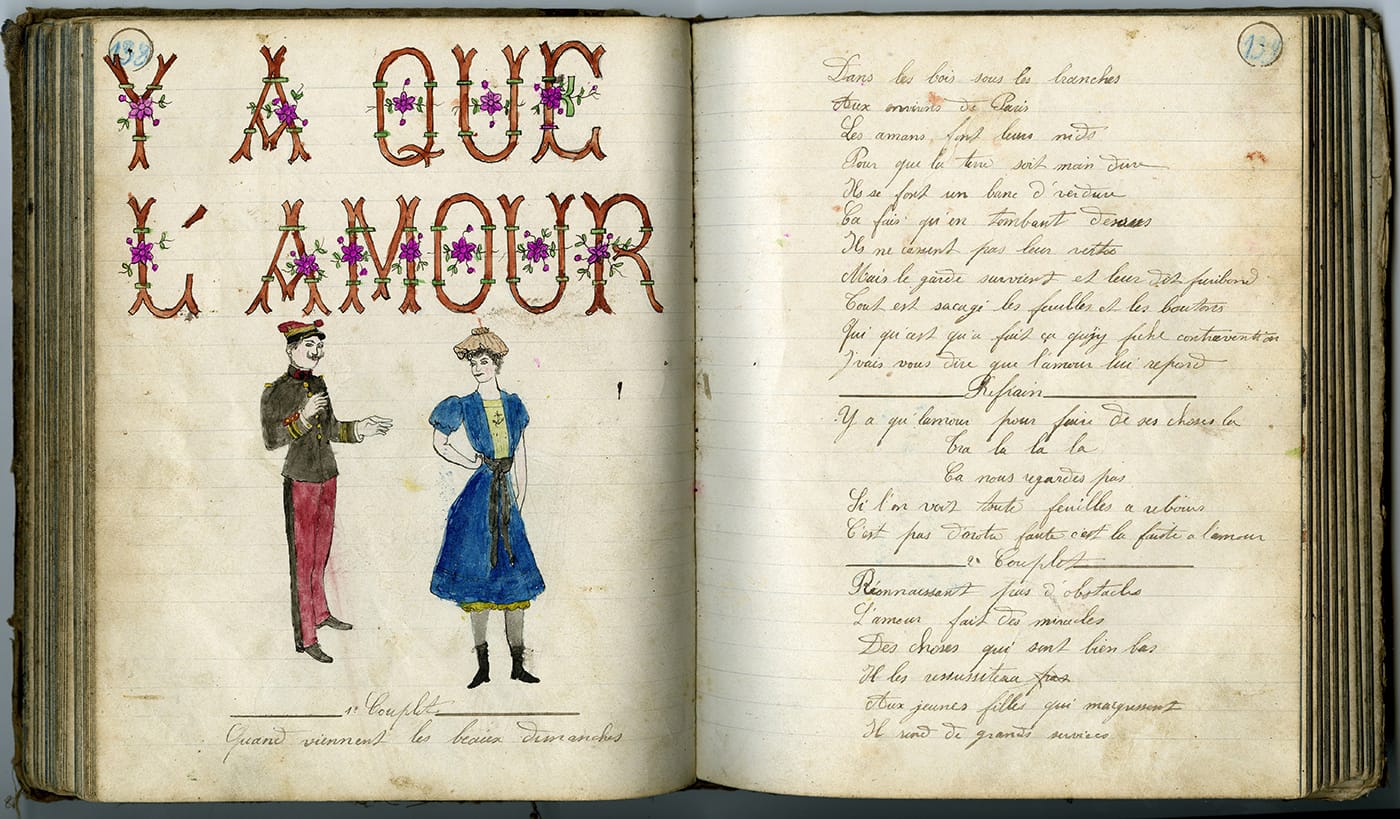 138
Y A QUE
L'AMOUR
1e Couplet
Quand viennent les beaux dimanches
139
Dans les bois sous les branches
Aux environs de Paris
Les amans font leurs nids
Pour que la terre soit moin dure
Ils se font un banc d'verdure
Ca fais qu'en tombant dessus
Ils ne cassent pas leur
Mais le garde survient et leur dit furibond
Tout est sacagé les feuilles et les boutons
Qui qu'est qu'a fait ça qu'j'y fiche contravention
J'vais vous dire que l'amour lui repond
Refrain
Y a qu'lamour pour faire de ses choses la
Tra la la la
Ca nous regardes pas
Si l'on voit toute feuilles a rebours
C'est pas d'notre faute c'est la faute a l'amour
2e Couplet
Réconnaissant pas d'obstacles
L'amour fait des miracles
Des choses qui sont bien bas
Il les
Aux jeunes filles qui maigrissent
Il rend de grands services